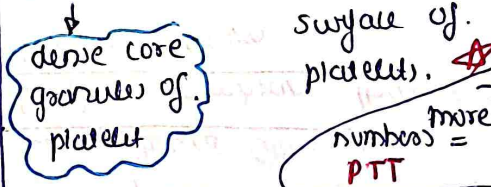 dense core
granules of
platelet
surface of
platelets.
more
numbers =
PTT